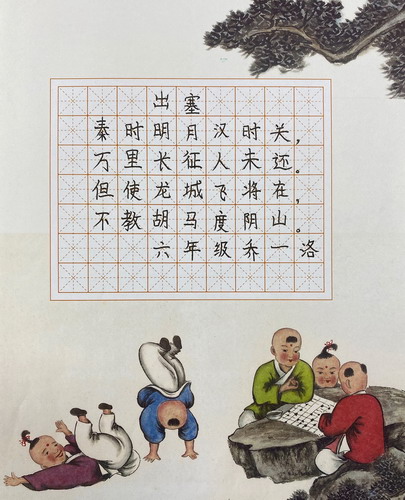 出塞
秦时明月汉时关，
万里长征人未还。
但使龙城飞将在，
不教胡马度阴山。
六年级乔一洛